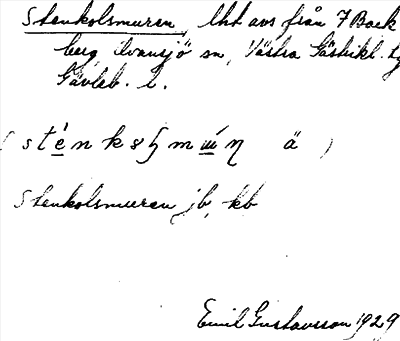 Stenkolsmuren, lht avs från 7 Back
berg, Ilvansjö sn, Västra Gästrikl.
Gävleb. l.
Stenkolsmuren jb, kb
Emil Gustavsson 1929